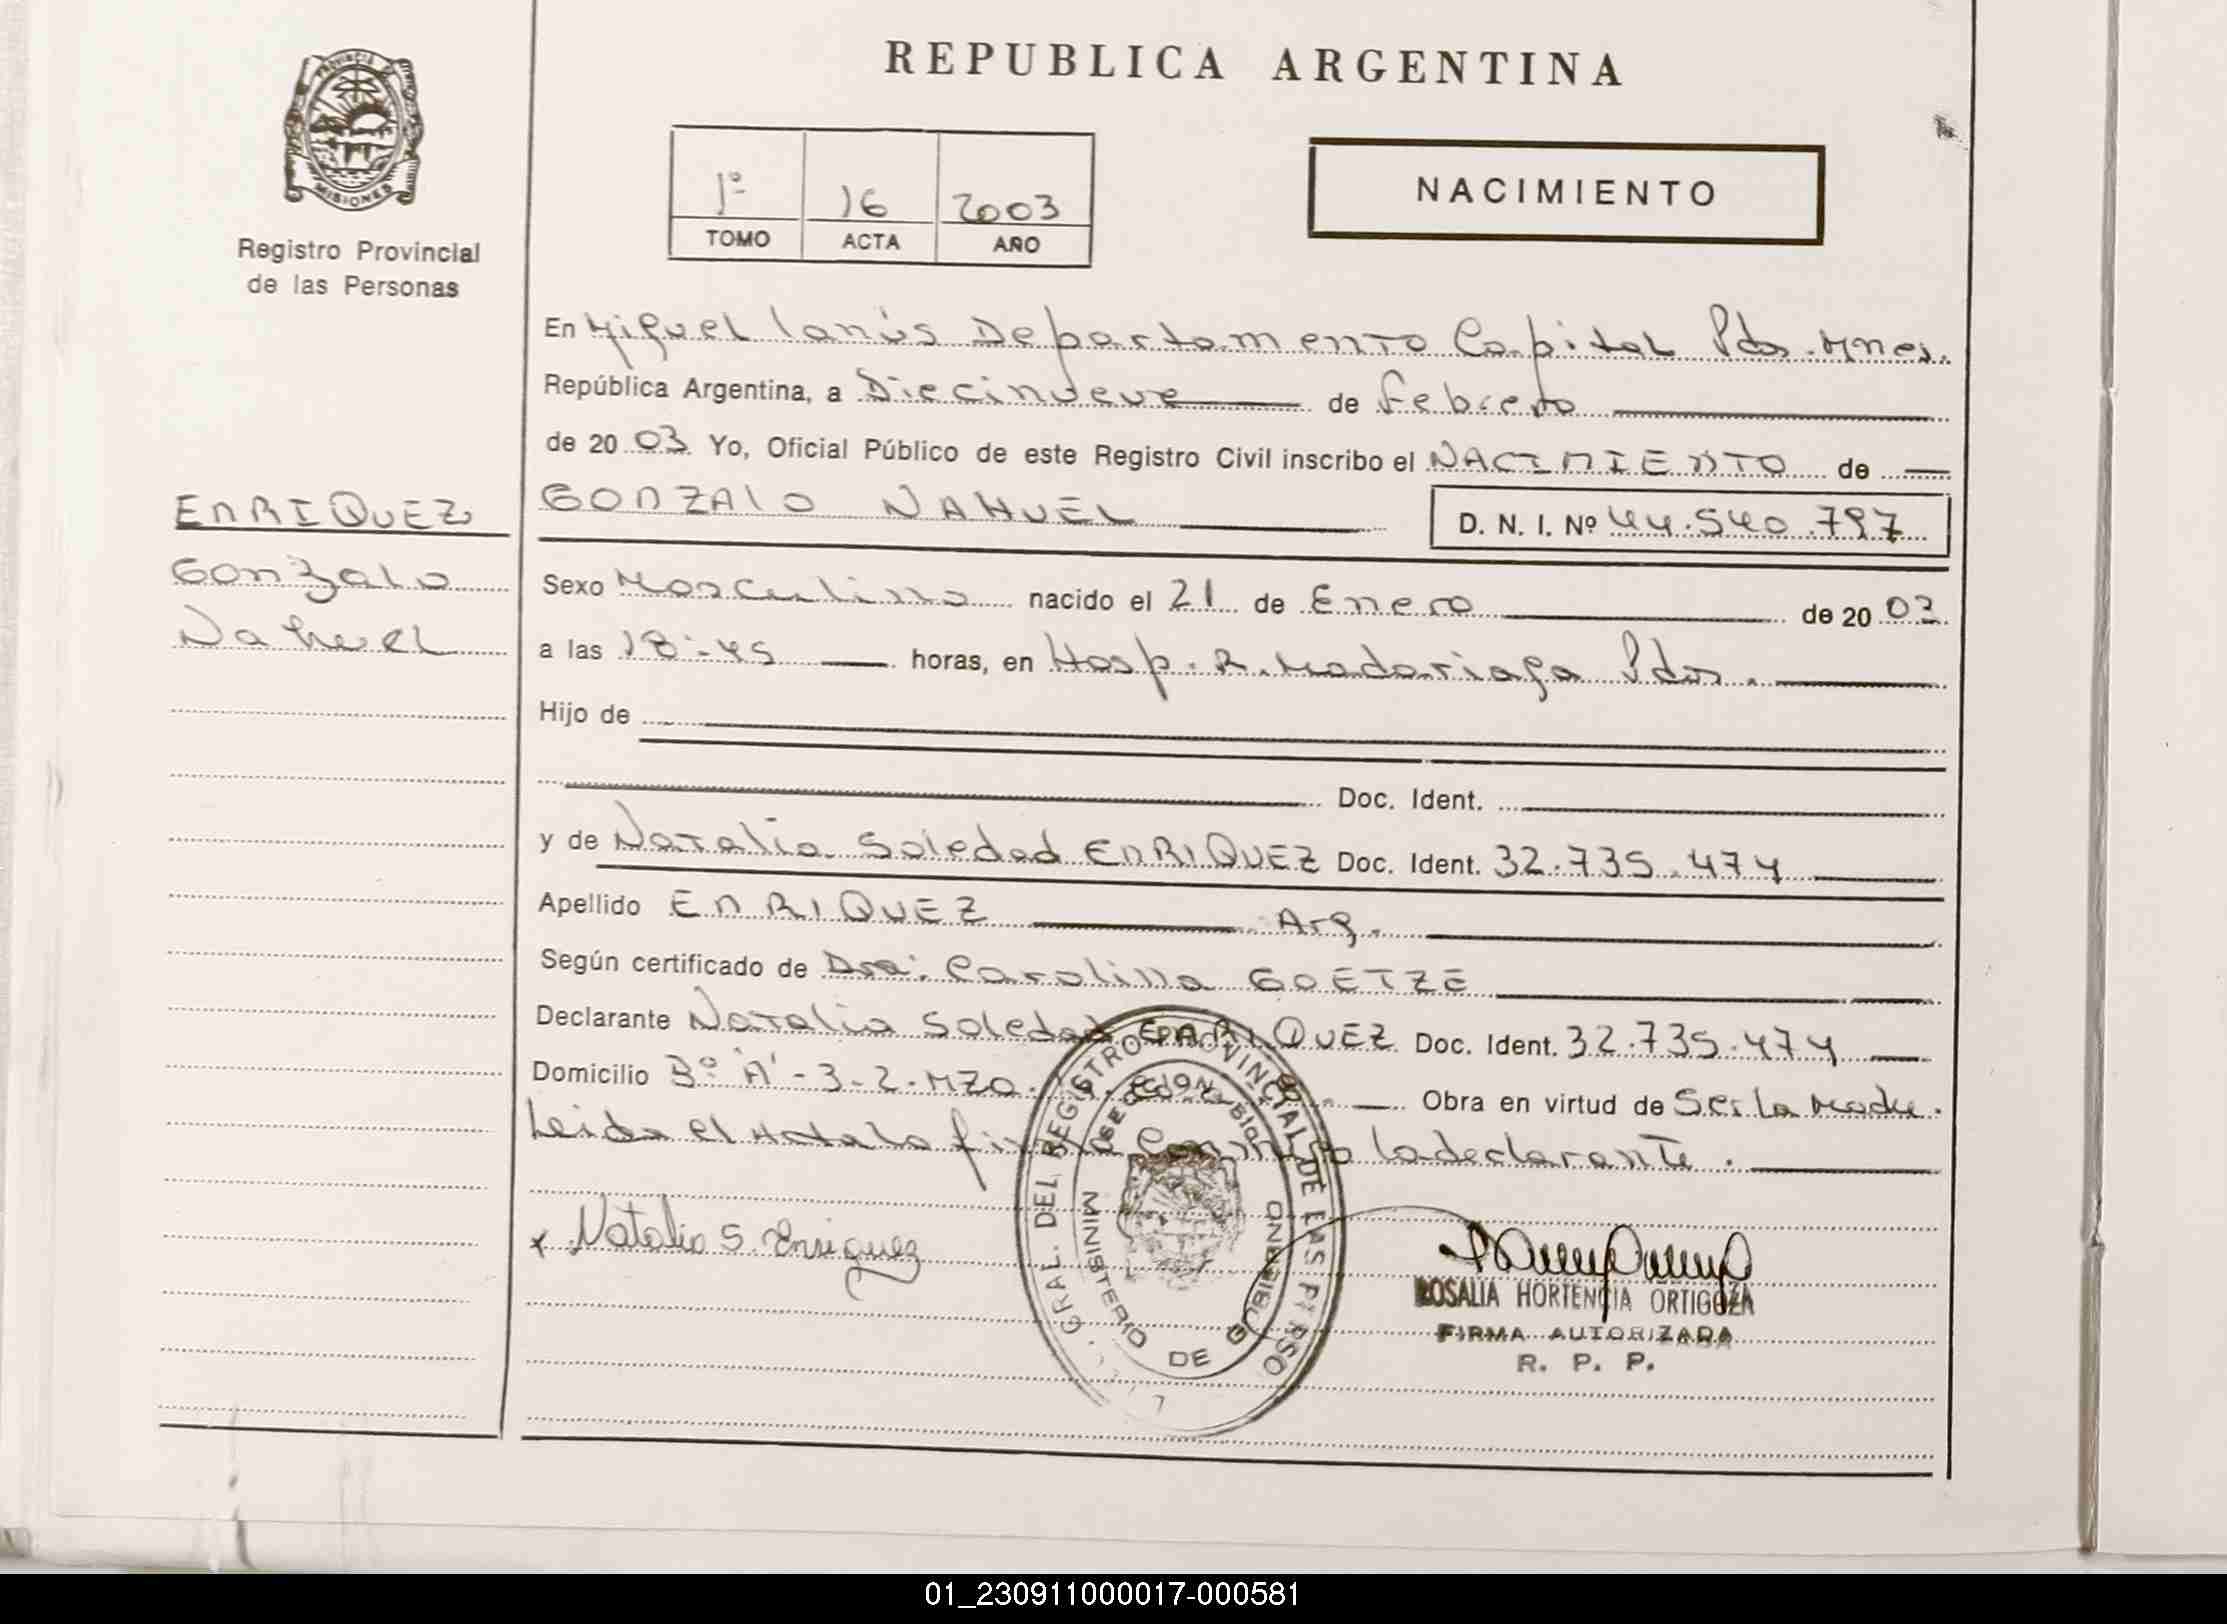 REPUBLICA ARGENTINA
PROVINCIA DE
MISIONES
Registro Provincial
de las Personas
1º 16 2003
TOMO ACTA AÑO
NACIMIENTO
En Miguel Lanús Departamento Capital Pdas. Mnes.
República Argentina, a Diecinueve de Febrero
de 20 03 Yo, Oficial Público de este Registro Civil inscribo el NACIMIENTO de
ENRIQUEZ
Gonzalo
Nahuel
GONZALO NAHUEL D. N. I. Nº 44.540.797
Sexo Masculino nacido el 21 de Enero de 20 03.
a las 18:45 horas, en Hosp. R. Madariaga Pdas.
Hijo de
Doc. Ident.
y de Natalia Soledad ENRIQUEZ Doc. Ident. 32.735.474
Apellido ENRIQUEZ Arg.
Según certificado de Dra. Carolina GOETZE
Declarante Natalia Soledad ENRIQUEZ Doc. Ident. 32.735.474
Domicilio Bº "A"-3-2-MZO. Obra en virtud de Ser la Madre.
Leida el Acta la firma conmigo la declarante.
x Natalia S. Enriquez
GRAL. DEL REGISTRO PROVINCIAL DE LAS PERSO
MINISTERIO DE GOBIERNO
ROSALIA HORTENCIA ORTIGOZA
FIRMA AUTORIZADA
R. P. P.
01_230911000017-000581